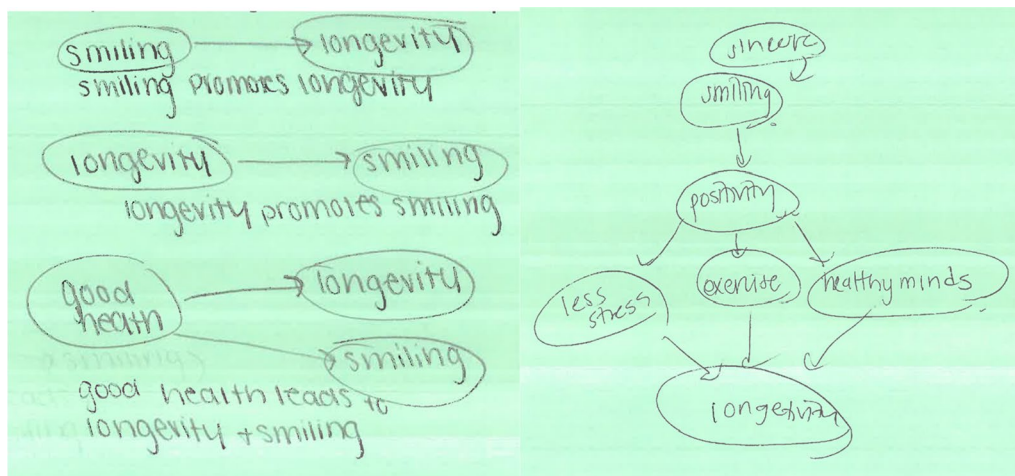 smiling longevity
smiling promotes longevity
longevity smiling
longevity promotes smiling
good
health
longevity
smiling
good health leads to
longevity + smiling
sincere
smiling
positivity
less
stress
exercise
healthy minds
longetivity